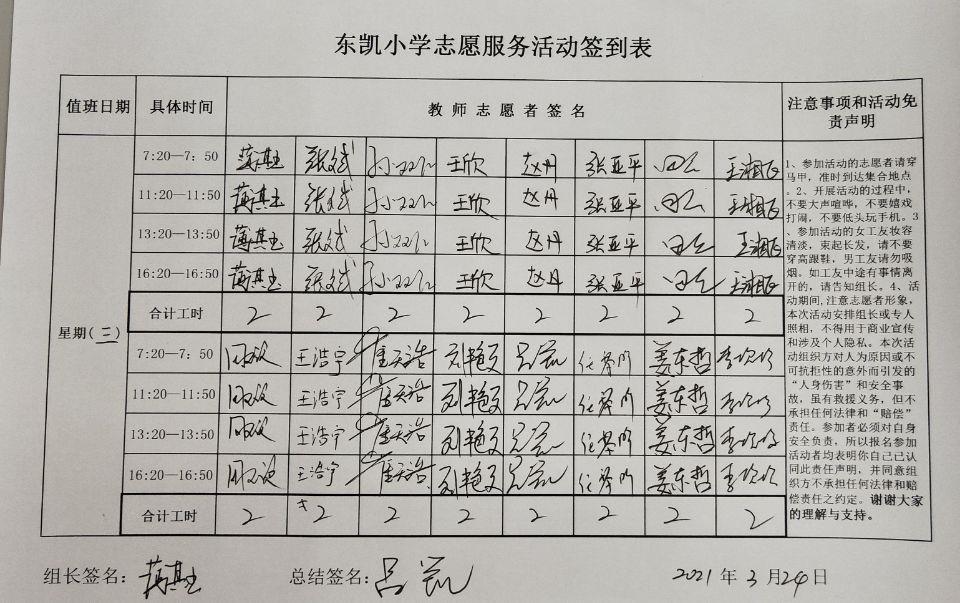 东凯小学志愿服务活动签到表
值班日期 具体时间 教师志愿者签名 注意事项和活动免责声明
星期(三)
7:20—7:50 张斌 王欣 赵丹 张亚平 王湘
11:20—11:50 张斌 王欣 赵丹 张亚平 王湘
13:20—13:50 张斌 王欣 赵丹 张亚平 王湘
16:20—16:50 张斌 王欣 赵丹 张亚平 王湘
合计工时 2 2 2 2 2 2 2 2
7:20—7:50 王浩宇 刘艳 姜东哲
11:20—11:50 王浩宇 刘艳 姜东哲
13:20—13:50 王浩宇 刘艳 姜东哲
16:20—16:50 王浩宇 刘艳 姜东哲
合计工时 2 2 2 2 2 2 2 2
1、参加活动的志愿者请穿
马甲，准时到达集合地点
。2、开展活动的过程中，
不要大声喧哗，不要嬉戏
打闹，不要低头玩手机。3
、参加活动的女工友妆容
清淡，束起长发，请不要
穿高跟鞋，男工友请勿吸
烟。如工友中途有事情离
开的，请告知组长。4、活
动期间，注意志愿者形象，
本次活动安排组长或专人
照相，不得用于商业宣传
和涉及个人隐私。本次活
动组织方对人为原因或不
可抗拒性的意外而引发的
“人身伤害”和安全事
故，虽有救援义务，但不
承担任何法律和“赔偿”
责任。参加者必须对自身
安全负责，所以报名参加
活动者均表明你自己已认
同此责任声明，并同意组
织方不承担任何法律和赔
偿责任之约定。谢谢大家
的理解与支持。
组长签名： 总结签名： 2021年3月24日